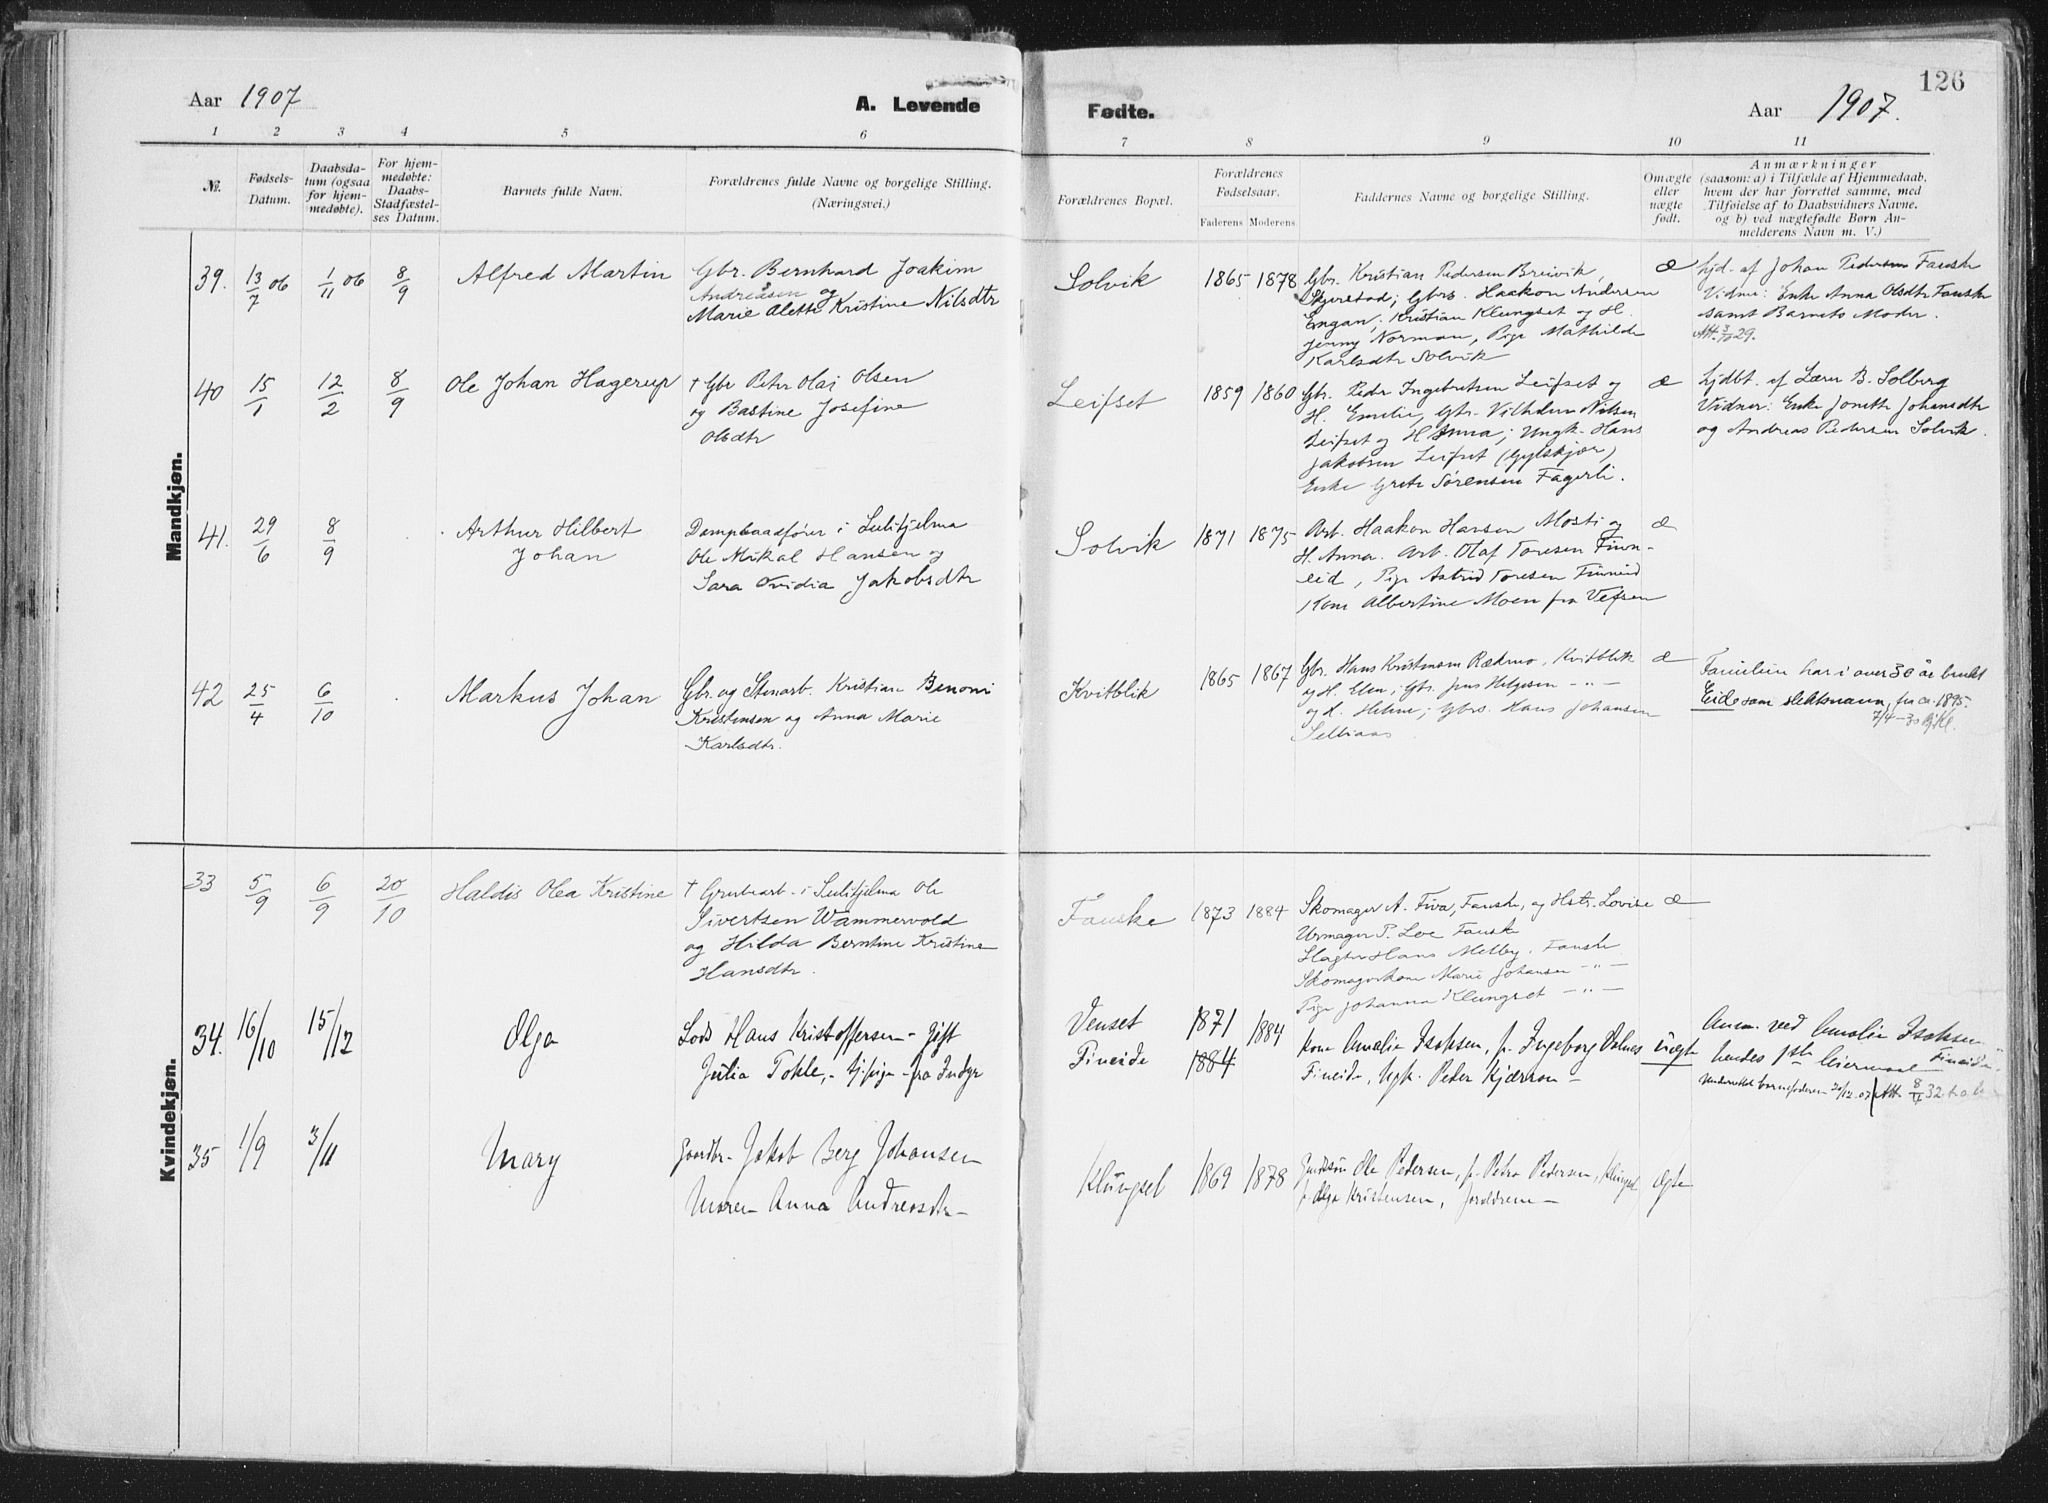 126
Aar 1907
A. Levende
Fødte.
Aar 1907.
1 2 3 4 5 6 7 8 9 10 11
№.
Fødsels-
Datum.
Daabsda-
tum (ogsaa
for hjem-
medøbte).
For hjem-
medøbte:
Daabs-
Stadfæstel-
ses Datum.
Barnets fulde Navn.
Forældrenes fulde Navne og borgelige Stilling.
(Næringsvei.)
Forældrenes Bopæl.
Forældrenes
Fødselsaar.
Faderens Moderens
Faddernes Navne og borgelige Stilling.
Omægte
eller
uægte
født.
Anmærkninger
(saasom: a) i Tilfælde af Hjemmedaab.
hvem der har forrettet samme, med
Tilføielse af to Daabsvidners Navne.
og b) ved uægtefødte Børn An-
melderens Navn m. V.)
Mandkjøn.
39. 13/7 06 1/11 06 8/9 Alfred Martin
Gbr. Bernhard Joakim
Andreasen og
Marie Alette Kristine Nilsdtr
Solvik 1865 1878
Gbr. Kristian Pedersen Breivik,
Skjerstad; Gbrs. Haakon Andersen
Engan, Kristian Klungset og H.
Jenny Norman, Pige Mathilde
Karlsdtr Solvik
æ
hjd. af Johan Pedersen Fauske
Vidner: Enke Anna Olsdtr Fauske
samt Barnets Moder.
Att. 3/10 29.
40 15/1 12/2 8/9 Ole Johan Hagerup
† Gbr Peter Olai Olsen
og Bastine Josefine
Olsdtr
Leifset 1859 1860
Gbr. Peder Ingebretsen Leifset og
H. Emelie, Gbr. Vilhelm Nilsen
Leifset og H. Anna; Ungk. Hans
Jakobsen Leifset (Gylskjær)
Enke Grete Sørensen Fagerli.
æ
hjdbt. af Lærer B. Solberg
Vidner: Enke Jonette Johansdtr
og Andreas Pedersen Solvik.
41. 29/6 8/9 Arthur Hilbert
Johan
Dampbaadfører i Sulitjelma
Ole Mikal Hansen og
Sara Ovidia Jakobsdtr
Solvik 1871 1875
Arb. Haakon Hansen Mosti og
H. Anna. Arb. Olaf Toresen Finn-
eid, Pige Astrid Toresen Finneid
Kone Albertine Moen fra Vefsen
æ
42 25/4 6/10 Markus Johan
Gbr. og Stenarb. Kristian Benoni
Kristensen og Anna Marie
Karlsdtr.
Kvitblik 1865 1867
Gbr. Hans Kristensen Rødmo, Kvitblik
og H. Elen; Gbr. Jens Helgesen - " -
og H. Heline; Gbrs. Hans Johansen
æ
Familien har i over 30 år brukt
Eide som slektsnavn, fra ca. 1895.
7/4-30
Kvindekjøn.
33 5/9 6/9 20/10 Haldis Olea Kristine
† Grubearb. i Sulitjelma Ole
Sivertsen Wammervold
og Hilda Berntine Kristine
Hansdtr.
Fauske 1873 1884
Skomager A. Fiva, Fauske, og Hstr. Lovise
Urmager P. Loe Fauske
Slagter Hans Melby. Fauske
Skomagerkone Marie Johansen - " -
Pige Johanna Klungset - " -
æ
34. 16/10 15/12 Olga
Lods Hans Kristoffersen - gift
Julia Tokle, - tj.pige - fra Indyr
Venset 1871 1884
Fineide 1884
Kone Amalie Isaksen, p. Ingeborg Valnes
Fineide, Ugk. Peder Kjærran -
uægte
Anm. ved Amalie Isaksen
Fineide.
hendes 1ste leiermaal
Underrettet barnefaderen 20/12.07 Att. 8/4 32
35 1/9 3/11 Mary
Gaardbr. Jakob Berg Johansen
Maren Anna Andreasdtr
Klungset 1869 1878
Ole Pedersen, p. Petra Pedersen, Klungset
p. Olga Kristensen, forældrene -
ægte